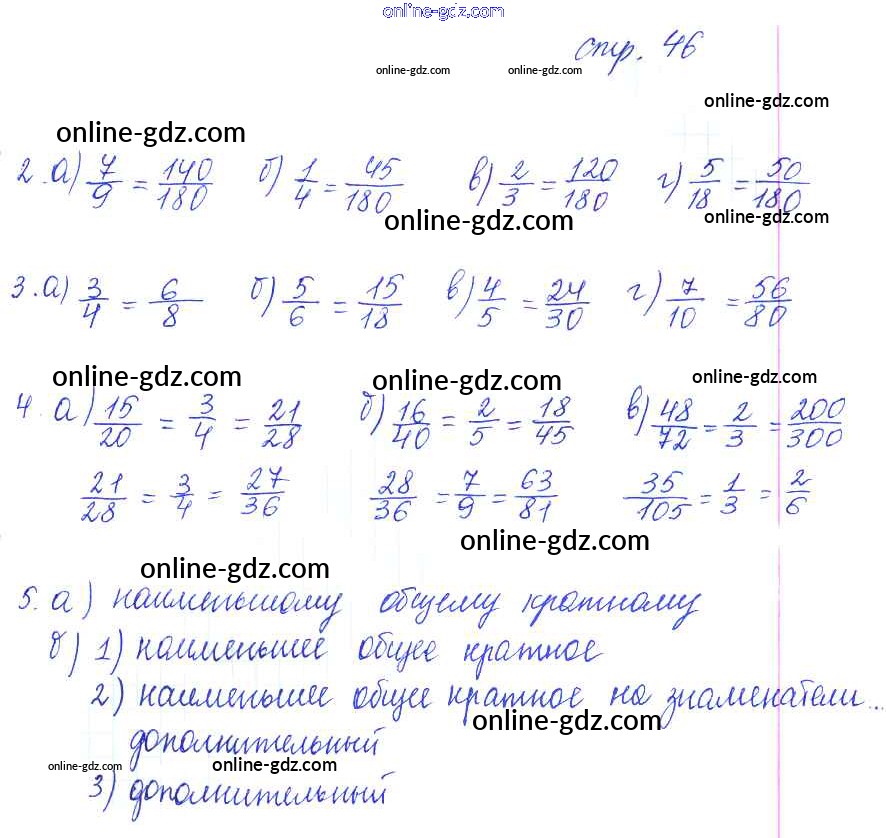 online-gdz.com
стр. 46
online-gdz.com online-gdz.com
online-gdz.com
online-gdz.com
2. а) 7/9 = 140/180 б) 1/4 = 45/180 в) 2/3 = 120/180 г) 5/18 = 50/180
online-gdz.com online-gdz.com
3. а) 3/4 = 6/8 б) 5/6 = 15/18 в) 4/5 = 24/30 г) 7/10 = 56/80
online-gdz.com online-gdz.com online-gdz.com
4. а) 15/20 = 3/4 = 21/28 б) 16/40 = 2/5 = 18/45 в) 48/72 = 2/3 = 200/300
21/28 = 3/4 = 27/36 28/36 = 7/9 = 63/81 35/105 = 1/3 = 2/6
online-gdz.com
online-gdz.com
5. а) наименьшому общему кратному
б) 1) наименьшее общее кратное
2) наименьшее общее кратное на знаменатели...
online-gdz.com
дополнительный
online-gdz.com online-gdz.com
3) дополнительный